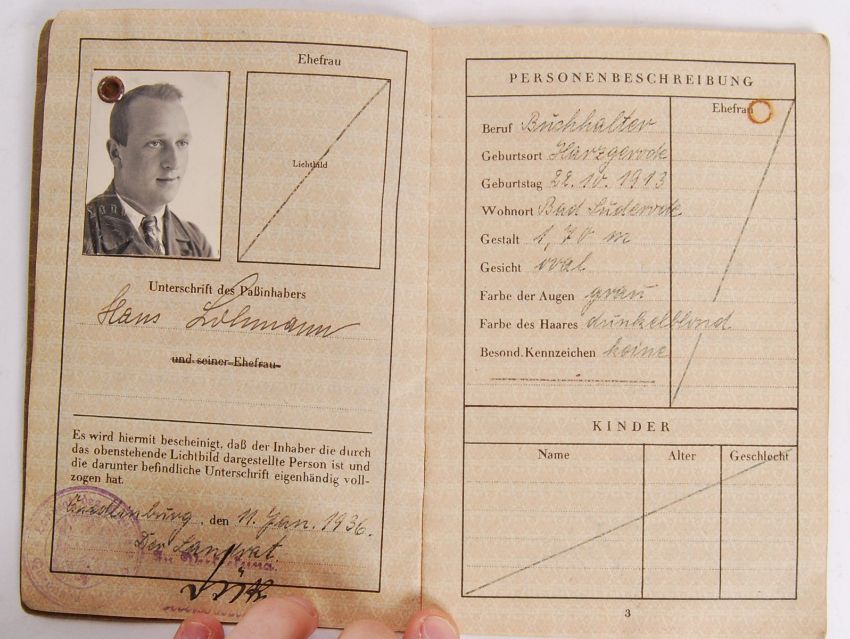 Ehefrau
Lichtbild
Unterschrift des Paßinhabers
Hans Lohmann
und seiner Ehefrau
Es wird hiermit bescheinigt, daß der Inhaber die durch
das obenstehende Lichtbild dargestellte Person ist und
die darunter befindliche Unterschrift eigenhändig voll-
zogen hat.
Quedlinburg, den 11. Jan. 1936.
Der Landrat.
PERSONENBESCHREIBUNG
Ehefrau
Beruf Buchhalter
Geburtsort Harzgerode
Geburtstag 22.10.1913
Wohnort Bad Suderode
Gestalt 1,70 m
Gesicht oval
Farbe der Augen grau
Farbe des Haares dunkelblond
Besond. Kennzeichen keine
KINDER
Name Alter Geschlecht
3